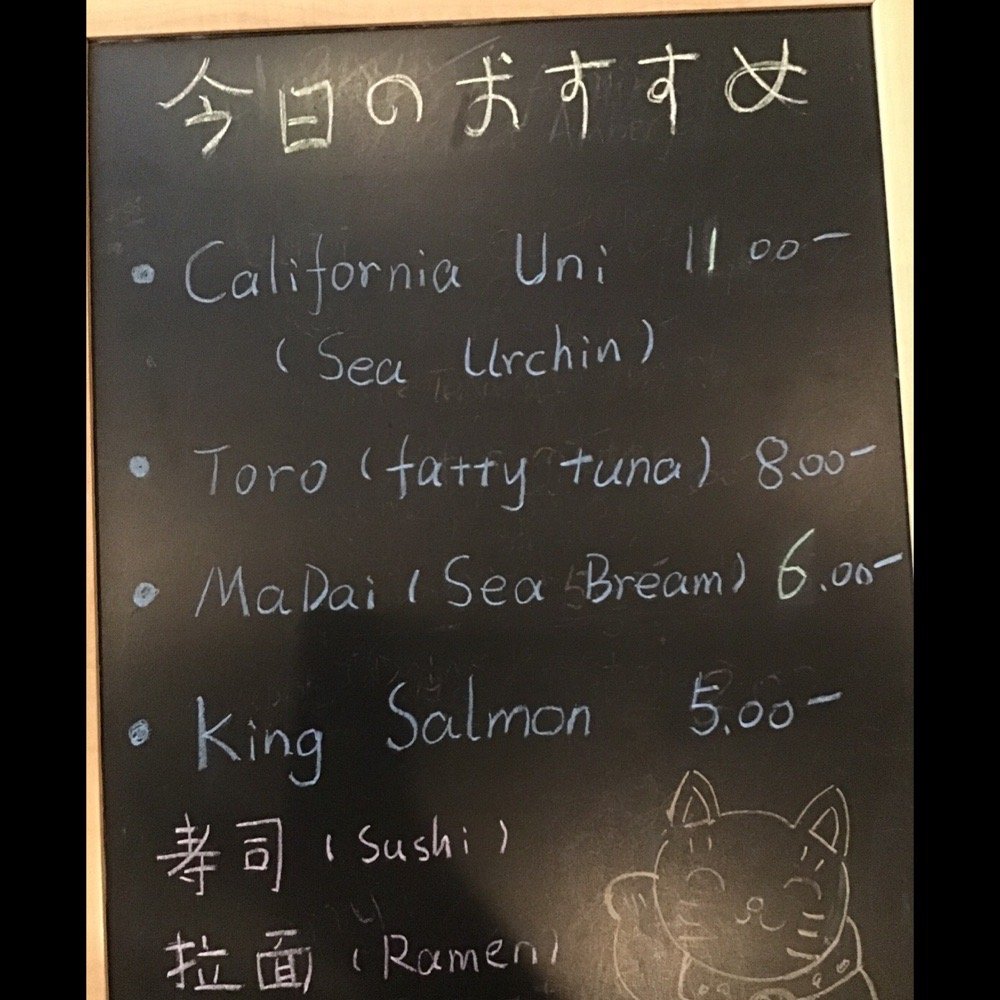 今日のおすすめ
• California Uni 11 00-
(Sea Urchin)
• Toro (fatty tuna) 8.00-
• MaDai (Sea Bream) 6.00-
• King Salmon 5.00-
寿司 (Sushi)
拉面 (Ramen)